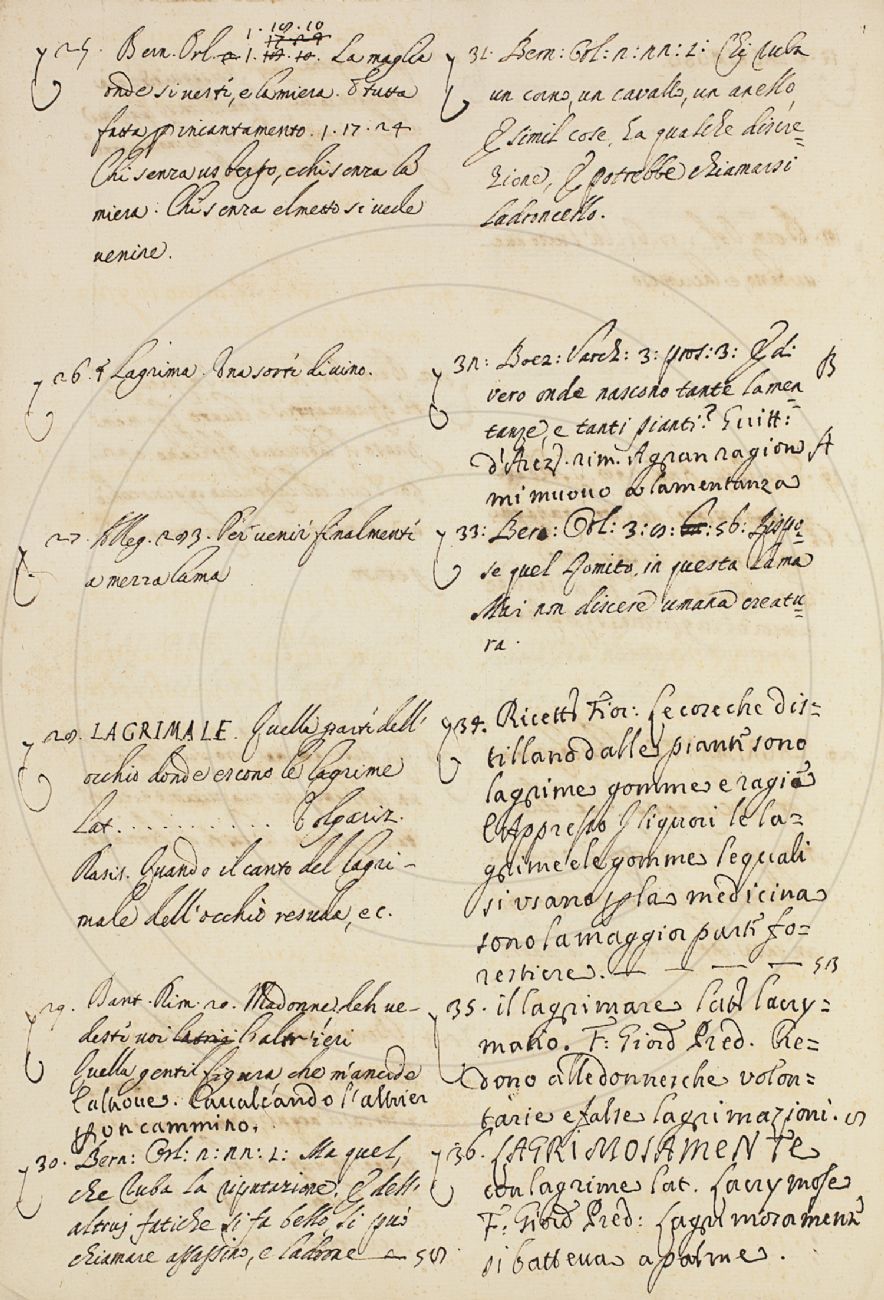 25. Bern. Orl. 1. 18. 10. La maglia
onde si vestì, e la miera. È tutta
fatta p incantamento. 1. 17. 24
Chi senza usbergo, e chi senza la
miera: Chi senza elmetto si vede
venire.
26. Lagrima. Una sorte di vino.
27. Alleg. 293. Per venire finalmente
a mezza lama
28. LAGRIMALE. Quella parte dell'
occhio donde escono le lagrime
Lat. . . . . . . . . . . Volgariz.
Rasis. Quando il canto del lagri-
male dell'occhio resuda, ec.
29. Dant. Rim. 20. Madonne, deh ve-
desti voi l'altr'ieri
Quella gentil figura che m'ancide
Cavalcando l'altrier
p un cammino.
30. Bern: Orl: 2: 22: 1: Ma quel,
che ruba la riputazione, & dell'
altrui fatiche si fa bello, si può
chiamare assassino, e ladrone —
31. Bern: Orl: 2: 22: 2: Chi ruba
un corno, un cavallo, un anello
& simil cose, ha qualche discre=
zione, & potrebbe chiamarsi
ladroncello.
32: Boez: Varch: 3: pros: 3: & di B
vero onde nascono tante lamen=
tanze, e tanti pianti? Guitt:
d'Arez. rim. A gran ragion A
mi muovo a lamentanza
33: Bern: Orl: 3: 56: Rispo=
se quel Romito, in questa Lama
Mai non discere umana creatu=
ra.
34. Ricett. Fior: Le cose che dis=
tillano dalle piante sono
lagrime gomme e ragie
E Appresso I liquori le la=
grime e le gomme le quali
si usano p la medicina
sono la maggior parte fo=
restiere. — — — —
35. il lagrimare Lat. lacry=
matio. F: Giord. Pred. Rie=
dono alle donnesche volon=
tarie e false lagrimazioni.
36. LAGRIMOSAMENTE
con lagrime Lat. Lacrymose
F: Giord. Pred: Lagrimosamente
si batteva a palme.